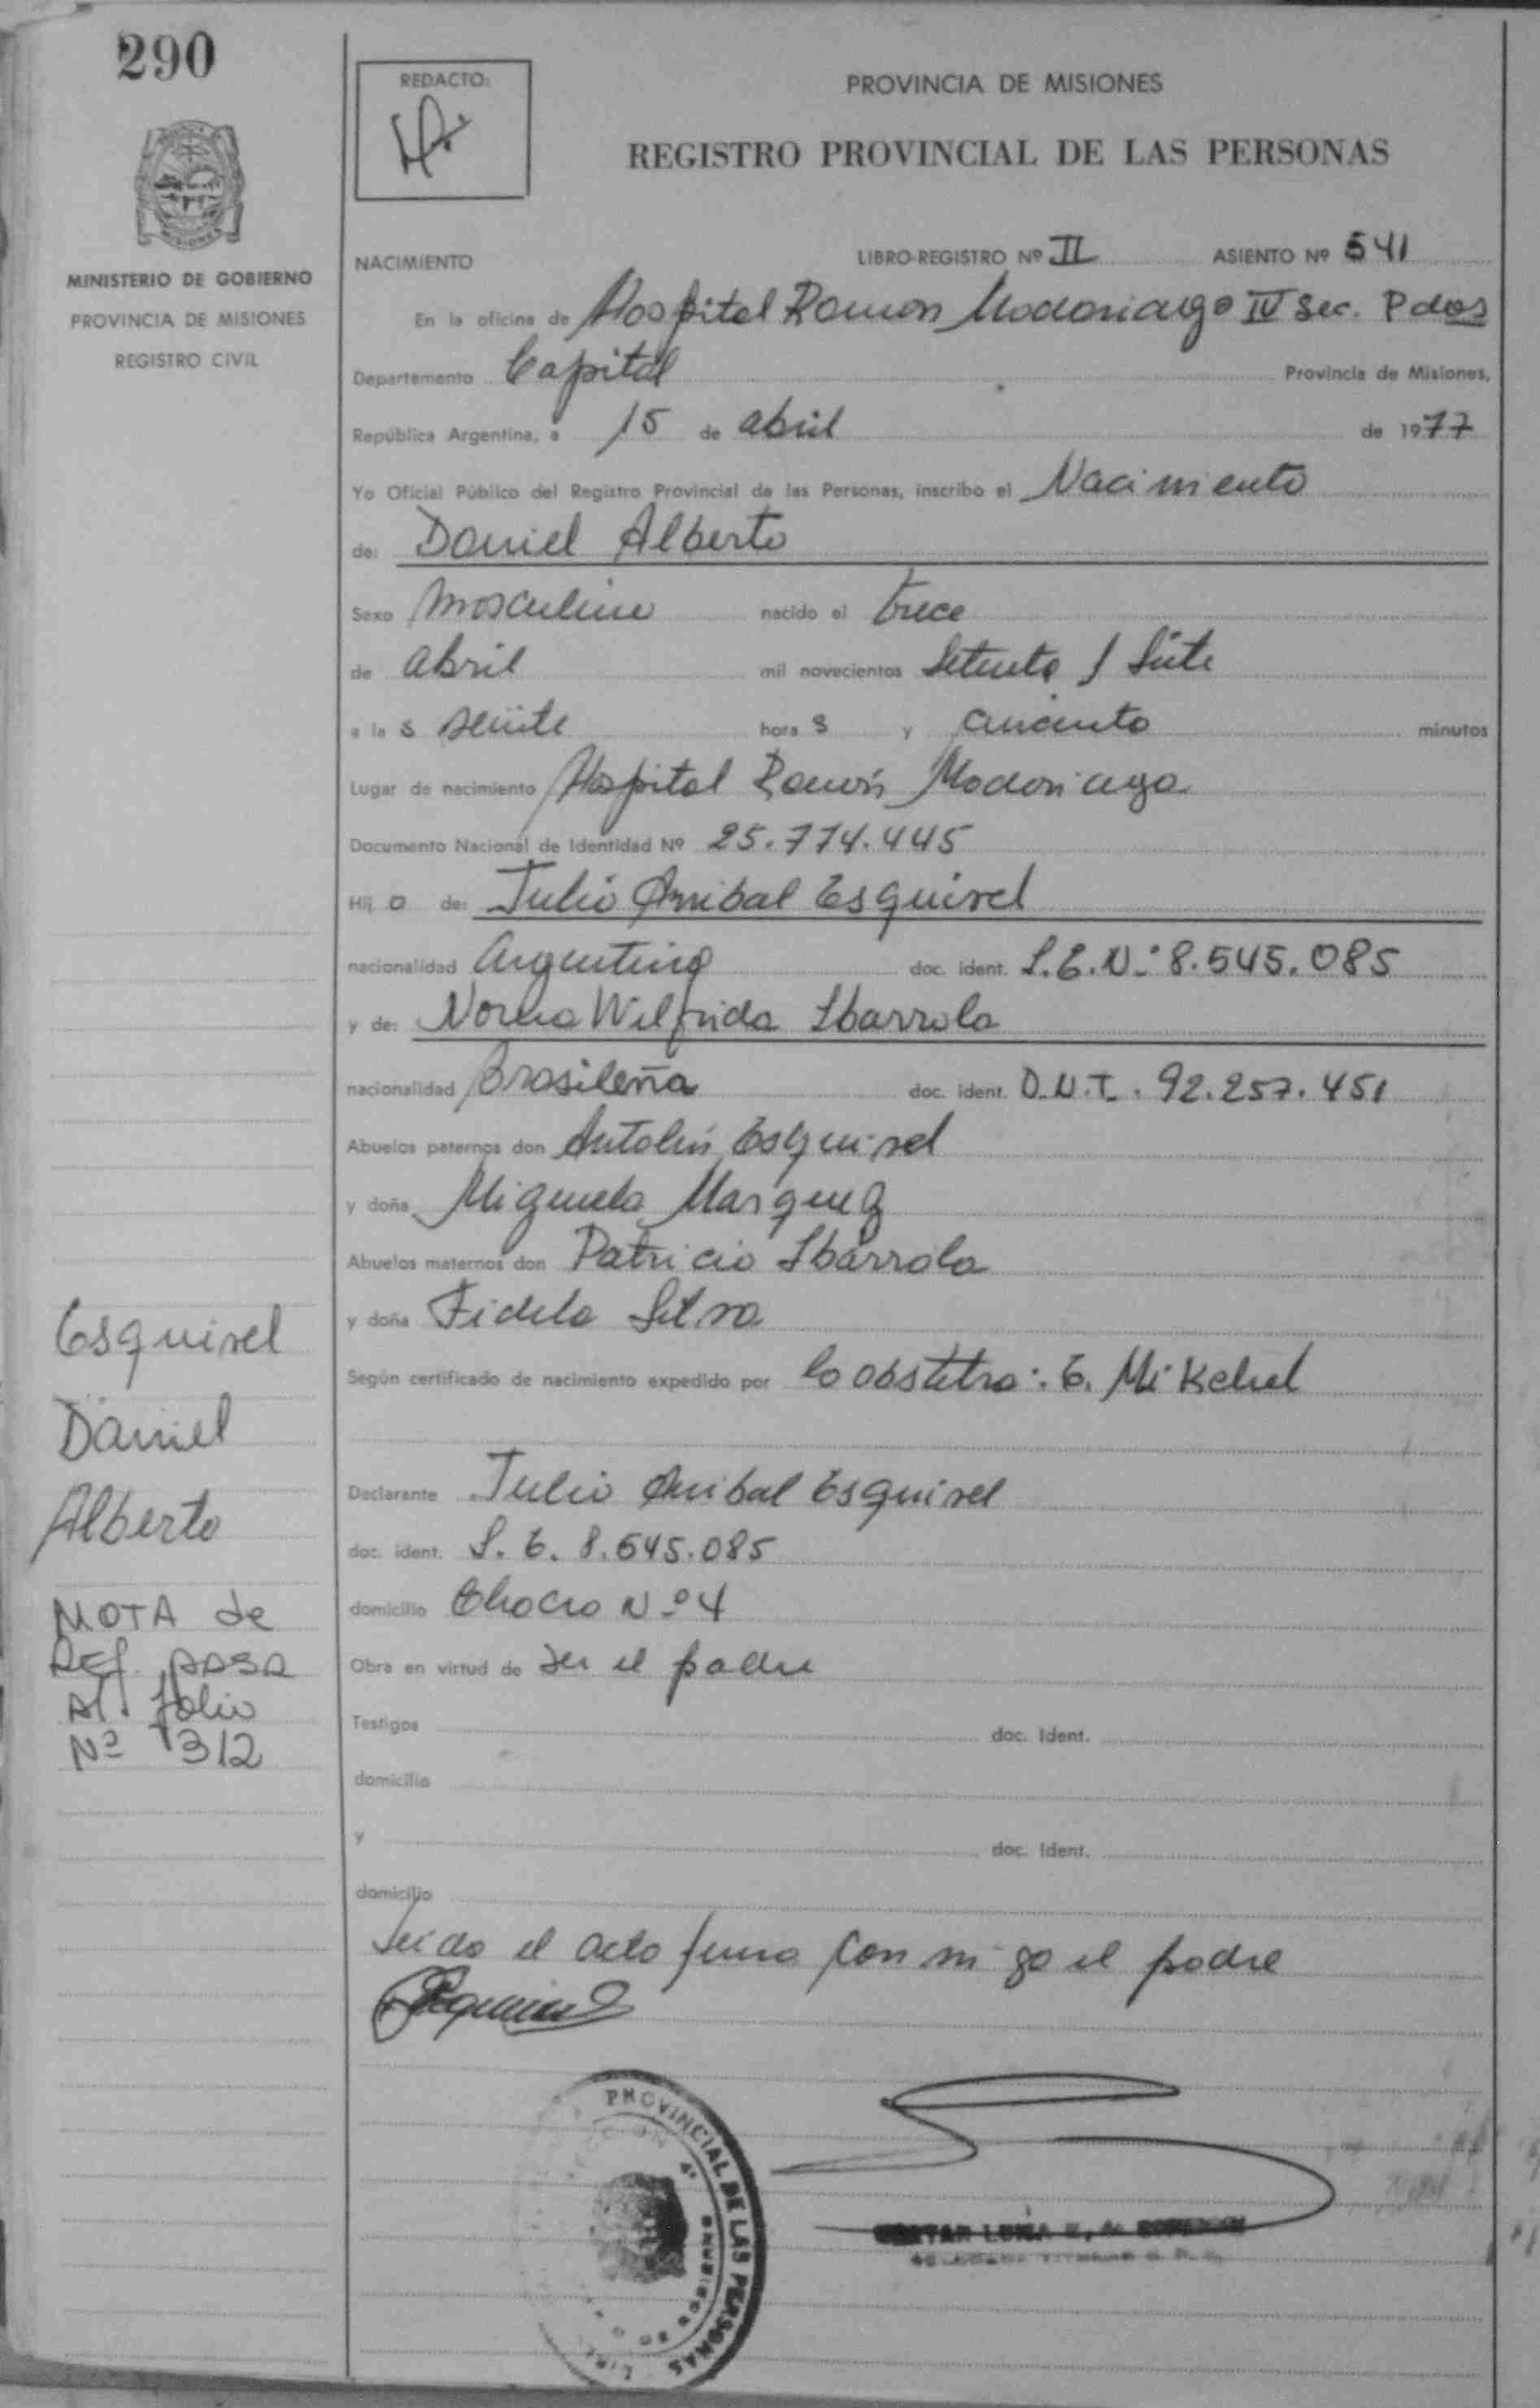 290
MINISTERIO DE GOBIERNO
PROVINCIA DE MISIONES
REGISTRO CIVIL
REDACTO:
PROVINCIA DE MISIONES
REGISTRO PROVINCIAL DE LAS PERSONAS
NACIMIENTO LIBRO-REGISTRO Nº II ASIENTO Nº 541
En la oficina de Hospital Ramon Madariaga IV Sec. Pdas
Departamento Capital Provincia de Misiones,
República Argentina, a 15 de abril de 1977
Yo Oficial Público del Registro Provincial de las Personas, inscribo el Nacimiento
de: Daniel Alberto
Sexo Masculino nacido el trece
de abril mil novecientos setenta y siete
a las hora s y minutos
Lugar de nacimiento Hospital Ramón Madariaga
Documento Nacional de Identidad Nº 25.774.445
Hijo de: Julio Anibal Esquivel
nacionalidad Argentina doc. ident. L.E.Nº 8.545.085
y de: Norma Wilfrida Ibarrola
nacionalidad Brasileña doc. ident. D.N.I. 92.257.451
Abuelos paternos don Antolín Esquivel
y doña Miguela Marquez
Abuelos maternos don Patricio Ibarrola
y doña Fidela Silva
Según certificado de nacimiento expedido por la obstetra: E.
Declarante Julio Anibal Esquivel
doc. ident. L.E. 8.545.085
domicilio Chacra Nº 4
Obra en virtud de ser el padre
Testigos doc. Ident.
domicilio
y doc. Ident.
domicilio
Leída el acta firma conmigo el padre
Esquivel
Daniel
Alberto
NOTA de
Ref. pasa
Al folio
Nº 312
PROVINCIAL DE LAS PERSONAS